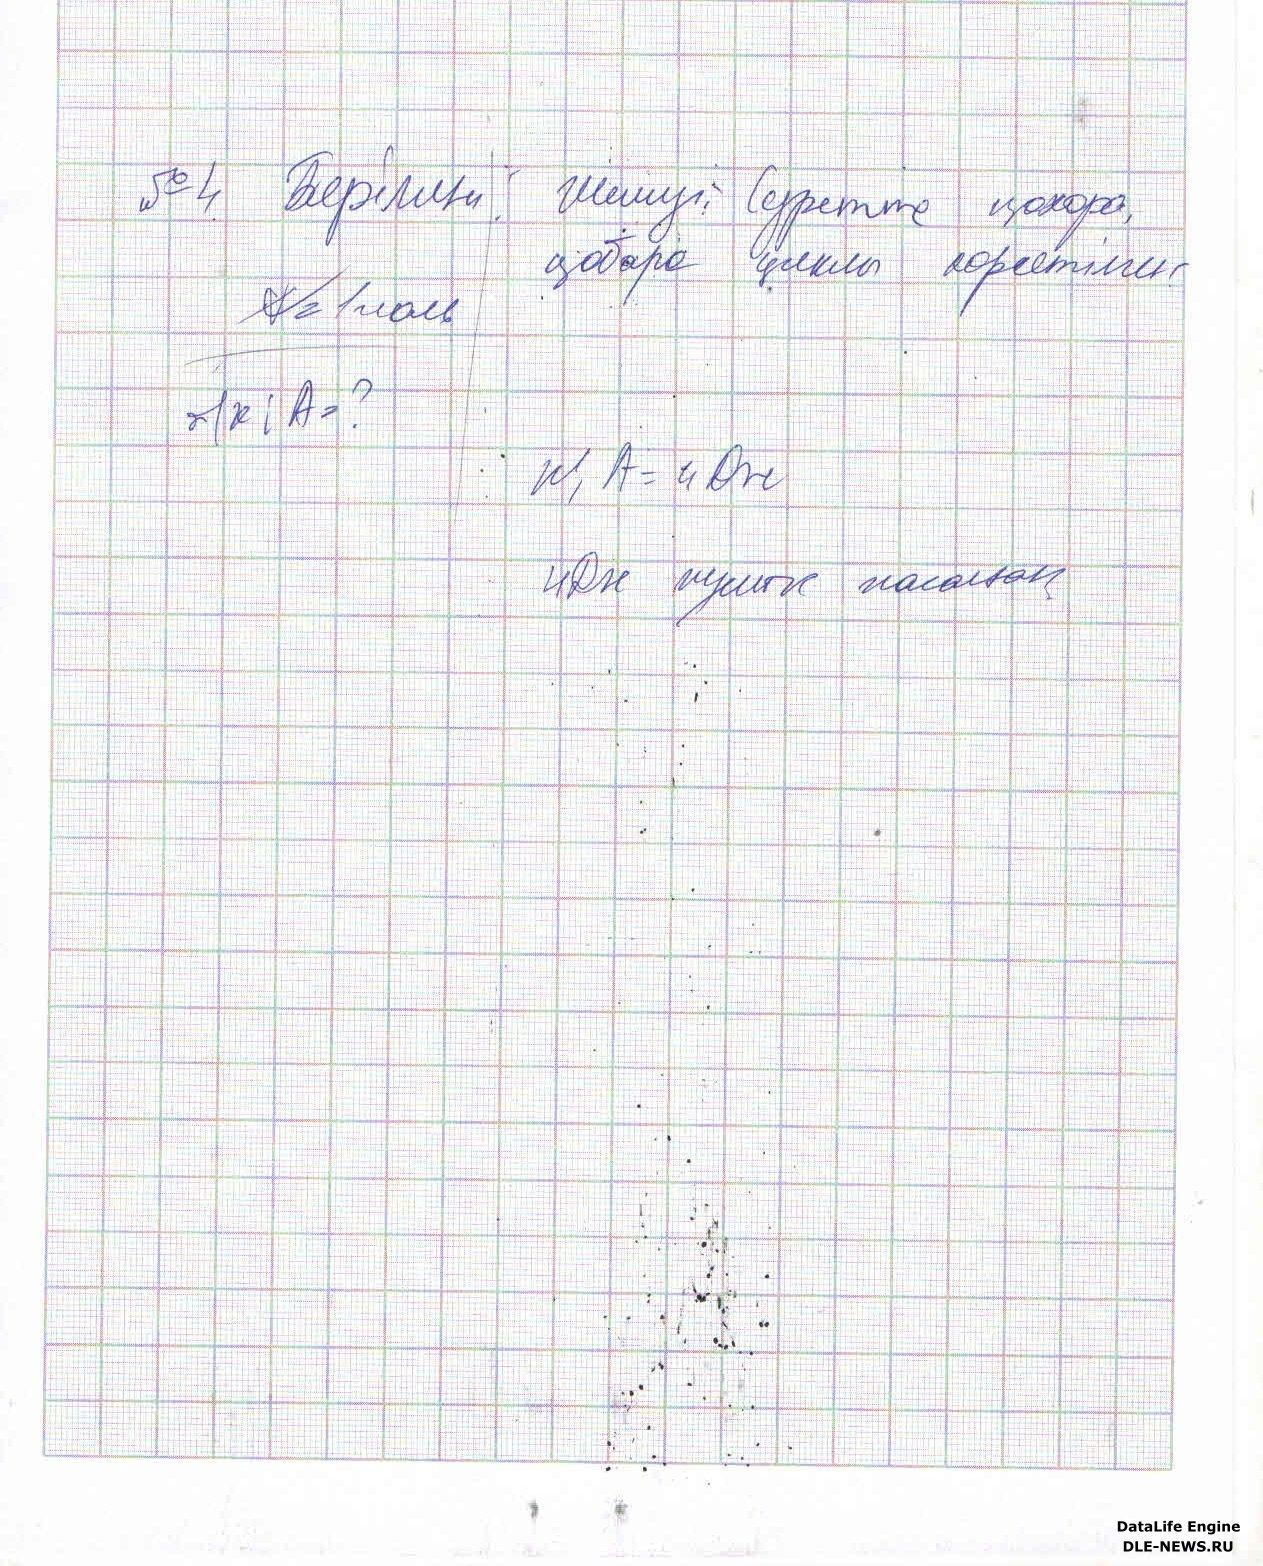 №4 Берілгені: Шешуі: Суретте изохора,
изобара циклы көрсетілген
= 1 моль
A = ?
A = 4 Дж
4Дж жұмыс жасайды
DataLife Engine
DLE-NEWS.RU